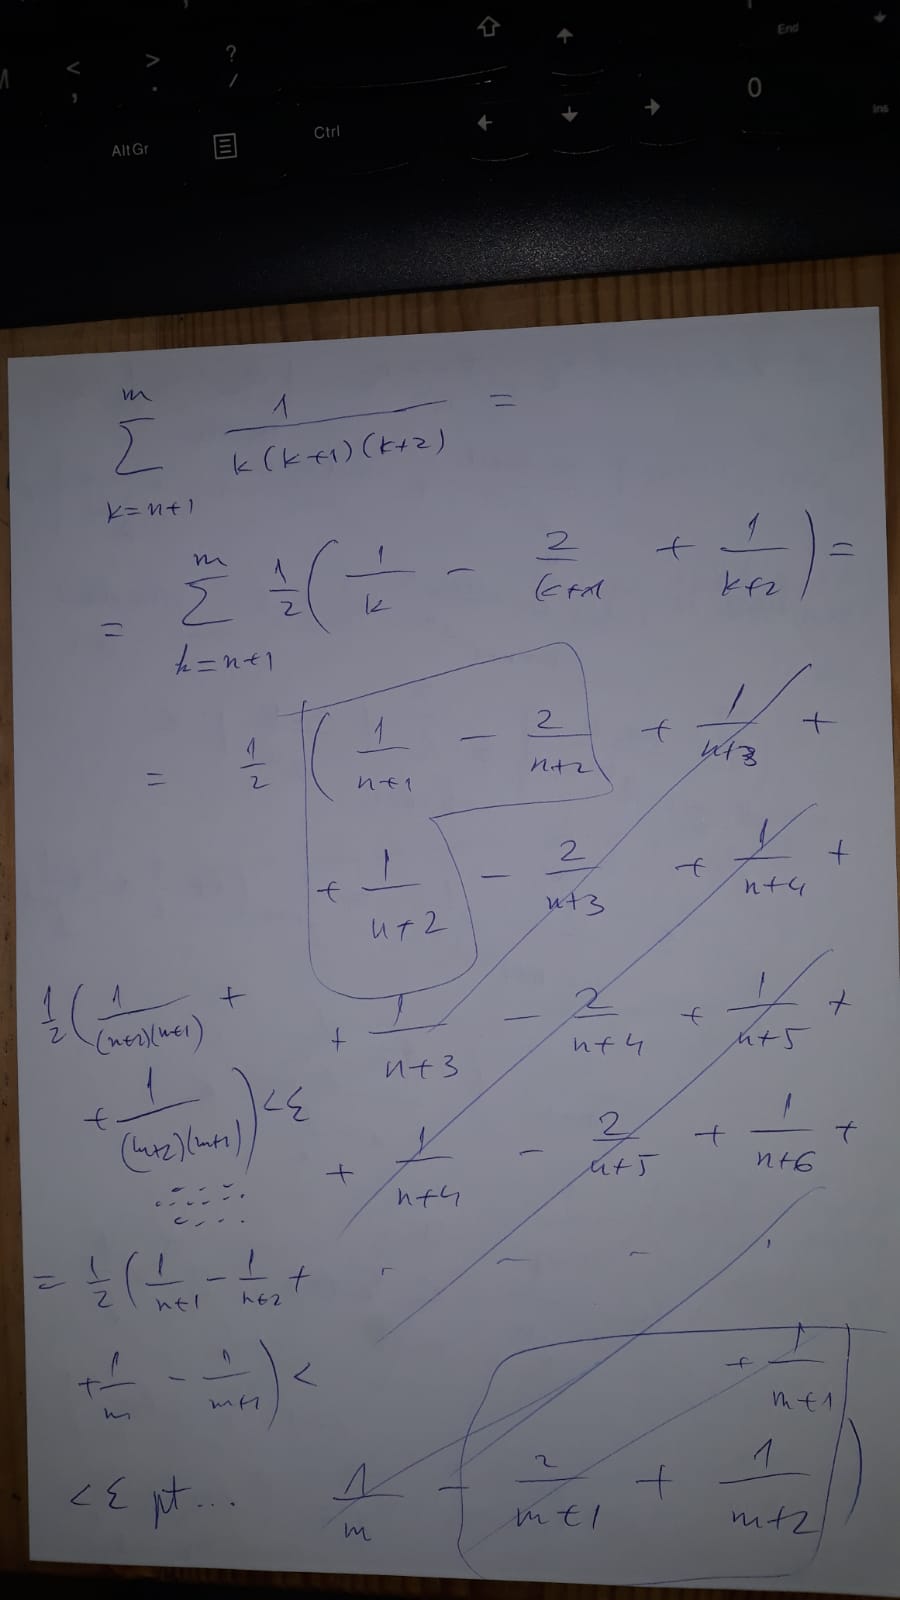 M < , > . ? / ⇧ ↑ End ↓
AltGr Ctrl ← ↓ → 0 Ins
m
Σ 1/(k(k+1)(k+2)) =
k=n+1
= m Σ k=n+1 1/2 ( 1/k - 2/(k+1) + 1/(k+2) ) =
= 1/2 ( 1/(n+1) - 2/(n+2) + 1/(n+3) +
+ 1/(n+2) - 2/(n+3) + 1/(n+4) +
+ 1/(n+3) - 2/(n+4) + 1/(n+5) +
+ 1/(n+4) - 2/(n+5) + 1/(n+6) +
- - - .
+ 1/(m+1)
1/m - 2/(m+1) + 1/(m+2) )
1/2 ( 1/((n+2)(n+1)) +
+ 1/((m+2)(m+1)) ) < ε
= 1/2 ( 1/(n+1) - 1/(n+2) +
+ 1/m - 1/(m+1) ) <
< ε pt...